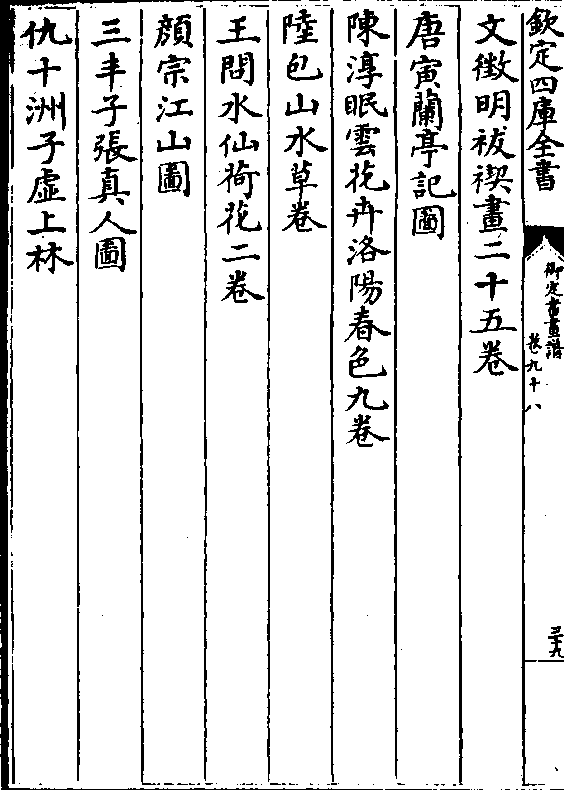 欽定四庫全書
御定書畫譜
卷九十八
三十九
文徵明祓禊畫二十五卷
唐寅蘭亭記圖
陳淳眠雲花卉洛陽春色九卷
陸包山水草卷
王問水仙荷花二卷
顔宗江山圖
三丰子張真人圖
仇十洲子虛上林